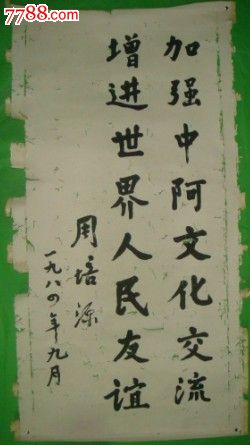 7788.com
加强中阿文化交流
增进世界人民友谊
周培源
一九八四年九月